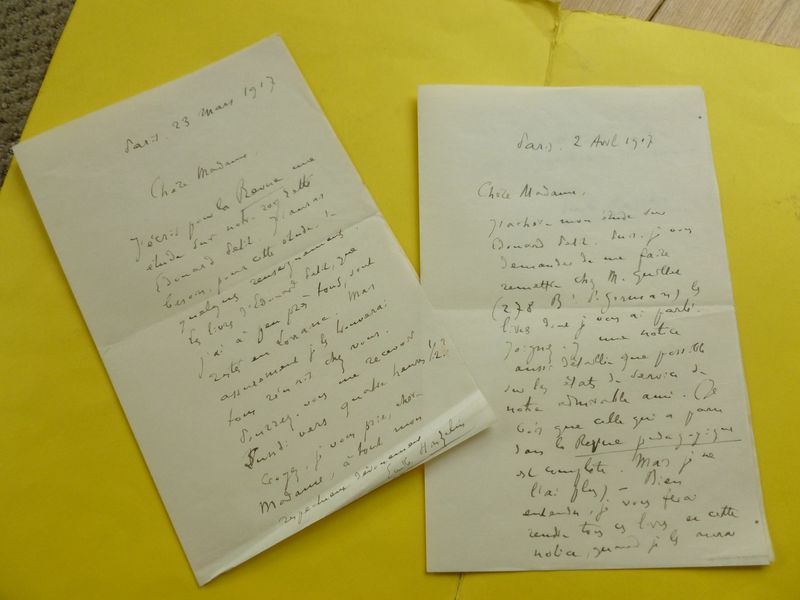 Paris. 23 Mars 1917
Chère Madame,
J'écris pour la Revue une
étude sur notre
Edouard Petit. J'aurais
besoin, pour cette étude, de
quelques renseignements.
Les livres d'Edouard Petit, que
j'ai à peu près tous, sont
restés en Lorraine. Mais
assurément je les trouverai
tous réunis chez vous.
Pourrez-vous me recevoir
Lundi vers quatre heures 1/2?
Croyez, je vous prie, chère
Madame, à tout mon
respectueux dévouement
Emile Hinzelin
Paris. 2 Avril 1917
Chère Madame,
J'achève mon étude sur
Edouard Petit. Puis-je vous
demander de me faire
remettre chez M.
(278 Bd St Germain) les
livres dont je vous ai parlé.
Joignez-y une notice
aussi détaillée que possible
sur les états de service de
notre admirable ami. (Je
crois que celle qui a paru
dans la Revue pédagogique
est complète. Mais je ne
l'ai plus) — Bien
entendu, je vous ferai
rendre tous ces livres et cette
notice, quand je les aurai